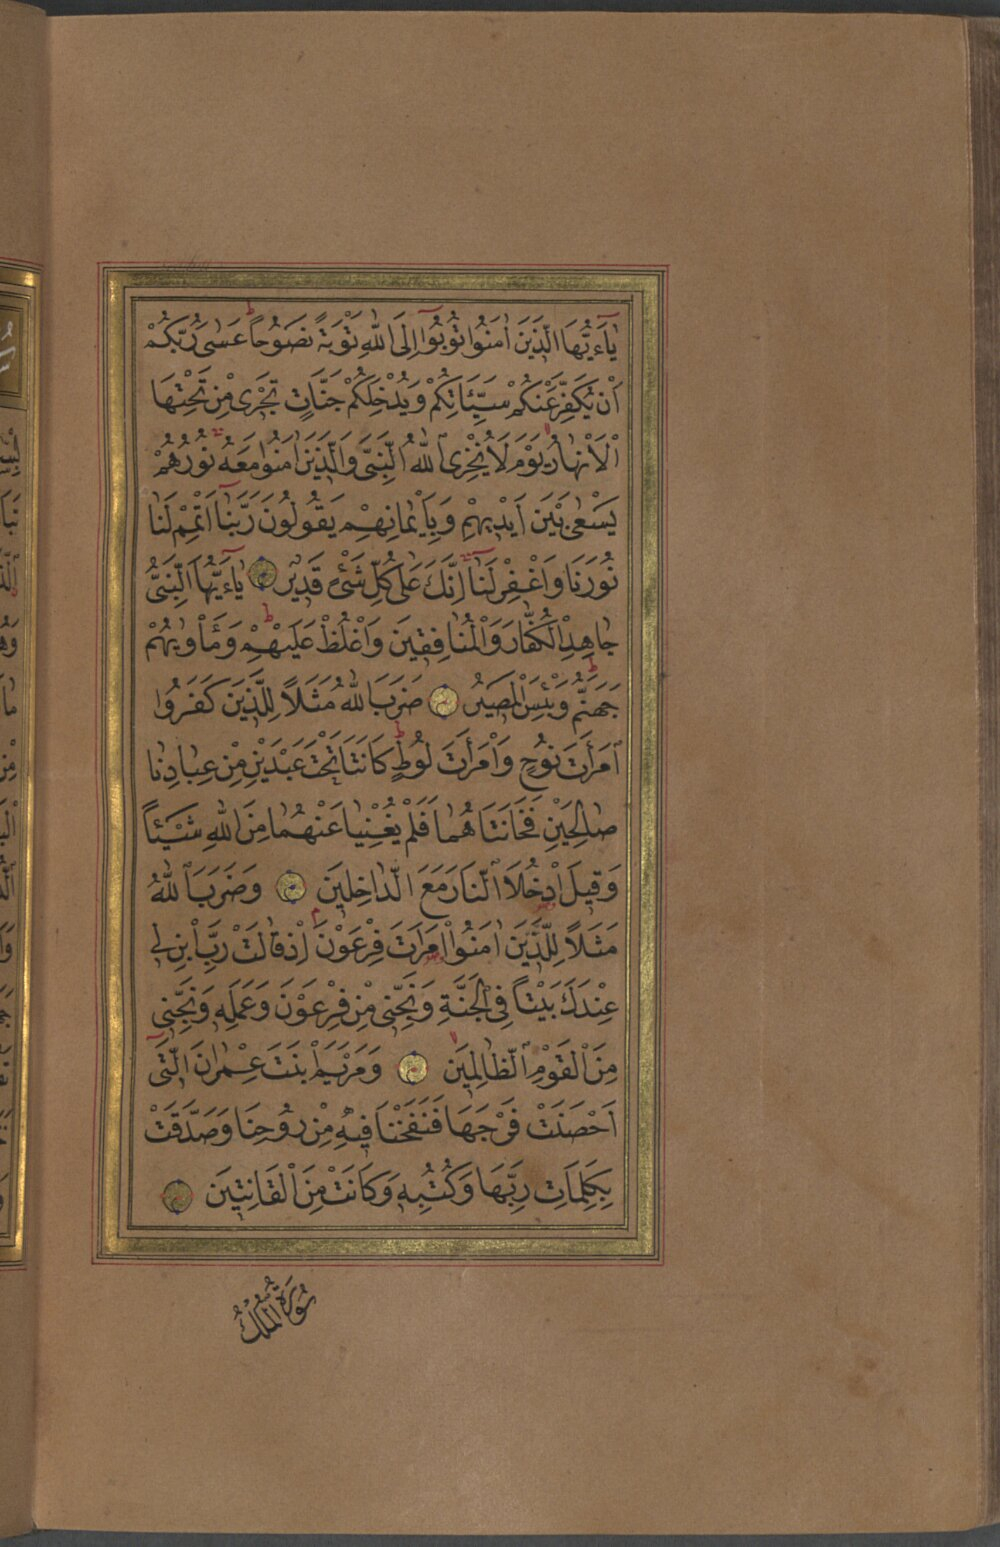 يَآءَيُّهَا الَّذ۪ينَ اٰمَنُوا تُوبُوٓا اِلَى اللّٰهِ تَوْبَةً نَصُوحًا عَسٰى رَبُّكُمْ
اَنْ يُكَفِّرَ عَنْكُمْ سَيِّئَاتِكُمْ وَيُدْخِلَكُمْ جَنَّاتٍ تَجْر۪ى مِنْ تَحْتِهَا
الْاَنْهَارُ يَوْمَ لَا يُخْزِى اللّٰهُ النَّبِىَّ وَالَّذ۪ينَ اٰمَنُوا مَعَهُ نُورُهُمْ
يَسْعٰى بَيْنَ اَيْد۪يهِمْ وَبِاَيْمَانِهِمْ يَقُولُونَ رَبَّنَٓا اَتْمِمْ لَنَا
نُورَنَا وَاغْفِرْ لَنَٓا اِنَّكَ عَلٰى كُلِّ شَىْءٍ قَد۪يرٌ يَآءَيُّهَا النَّبِىُّ
جَاهِدِ الْكُفَّارَ وَالْمُنَافِق۪ينَ وَاغْلُظْ عَلَيْهِمْ وَمَأْوٰيهُمْ
جَهَنَّمُ وَبِئْسَ الْمَص۪يرُ ضَرَبَ اللّٰهُ مَثَلًا لِلَّذ۪ينَ كَفَرُوا
امْرَأَتَ نُوحٍ وَامْرَأَتَ لُوطٍ كَانَتَا تَحْتَ عَبْدَيْنِ مِنْ عِبَادِنَا
صَالِحَيْنِ فَخَانَتَاهُمَا فَلَمْ يُغْنِيَا عَنْهُمَا مِنَ اللّٰهِ شَيْئًا
وَق۪يلَ ادْخُلَا النَّارَ مَعَ الدَّاخِل۪ينَ وَضَرَبَ اللّٰهُ
مَثَلًا لِلَّذ۪ينَ اٰمَنُوا امْرَاَتَ فِرْعَوْنَ اِذْ قَالَتْ رَبِّ ابْنِ ل۪ى
عِنْدَكَ بَيْتًا فِى الْجَنَّةِ وَنَجِّن۪ى مِنْ فِرْعَوْنَ وَعَمَلِه۪ وَنَجِّن۪ى
مِنَ الْقَوْمِ الظَّالِم۪ينَ وَمَرْيَمَ ابْنَتَ عِمْرٰنَ الَّت۪ٓى
اَحْصَنَتْ فَرْجَهَا فَنَفَخْنَا ف۪يهِ مِنْ رُوحِنَا وَصَدَّقَتْ
بِكَلِمَاتِ رَبِّهَا وَكُتُبِه۪ وَكَانَتْ مِنَ الْقَانِت۪ينَ
سُورَةُ الْمُلْكُ